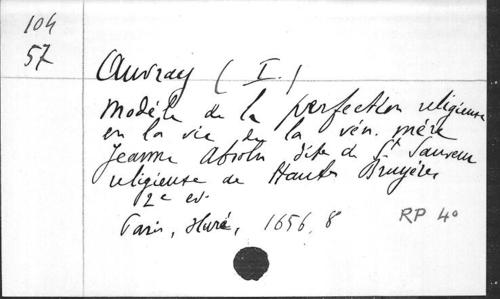 104
57
Auvray (I.)
Modèle de la perfection religieuse
en la vie de la vén. mère
Jeanne Absolu dite de St Sauveur
religieuse de Hautes Bruyères
2e ed.
Paris, Huré, 1656, 8
RP 40